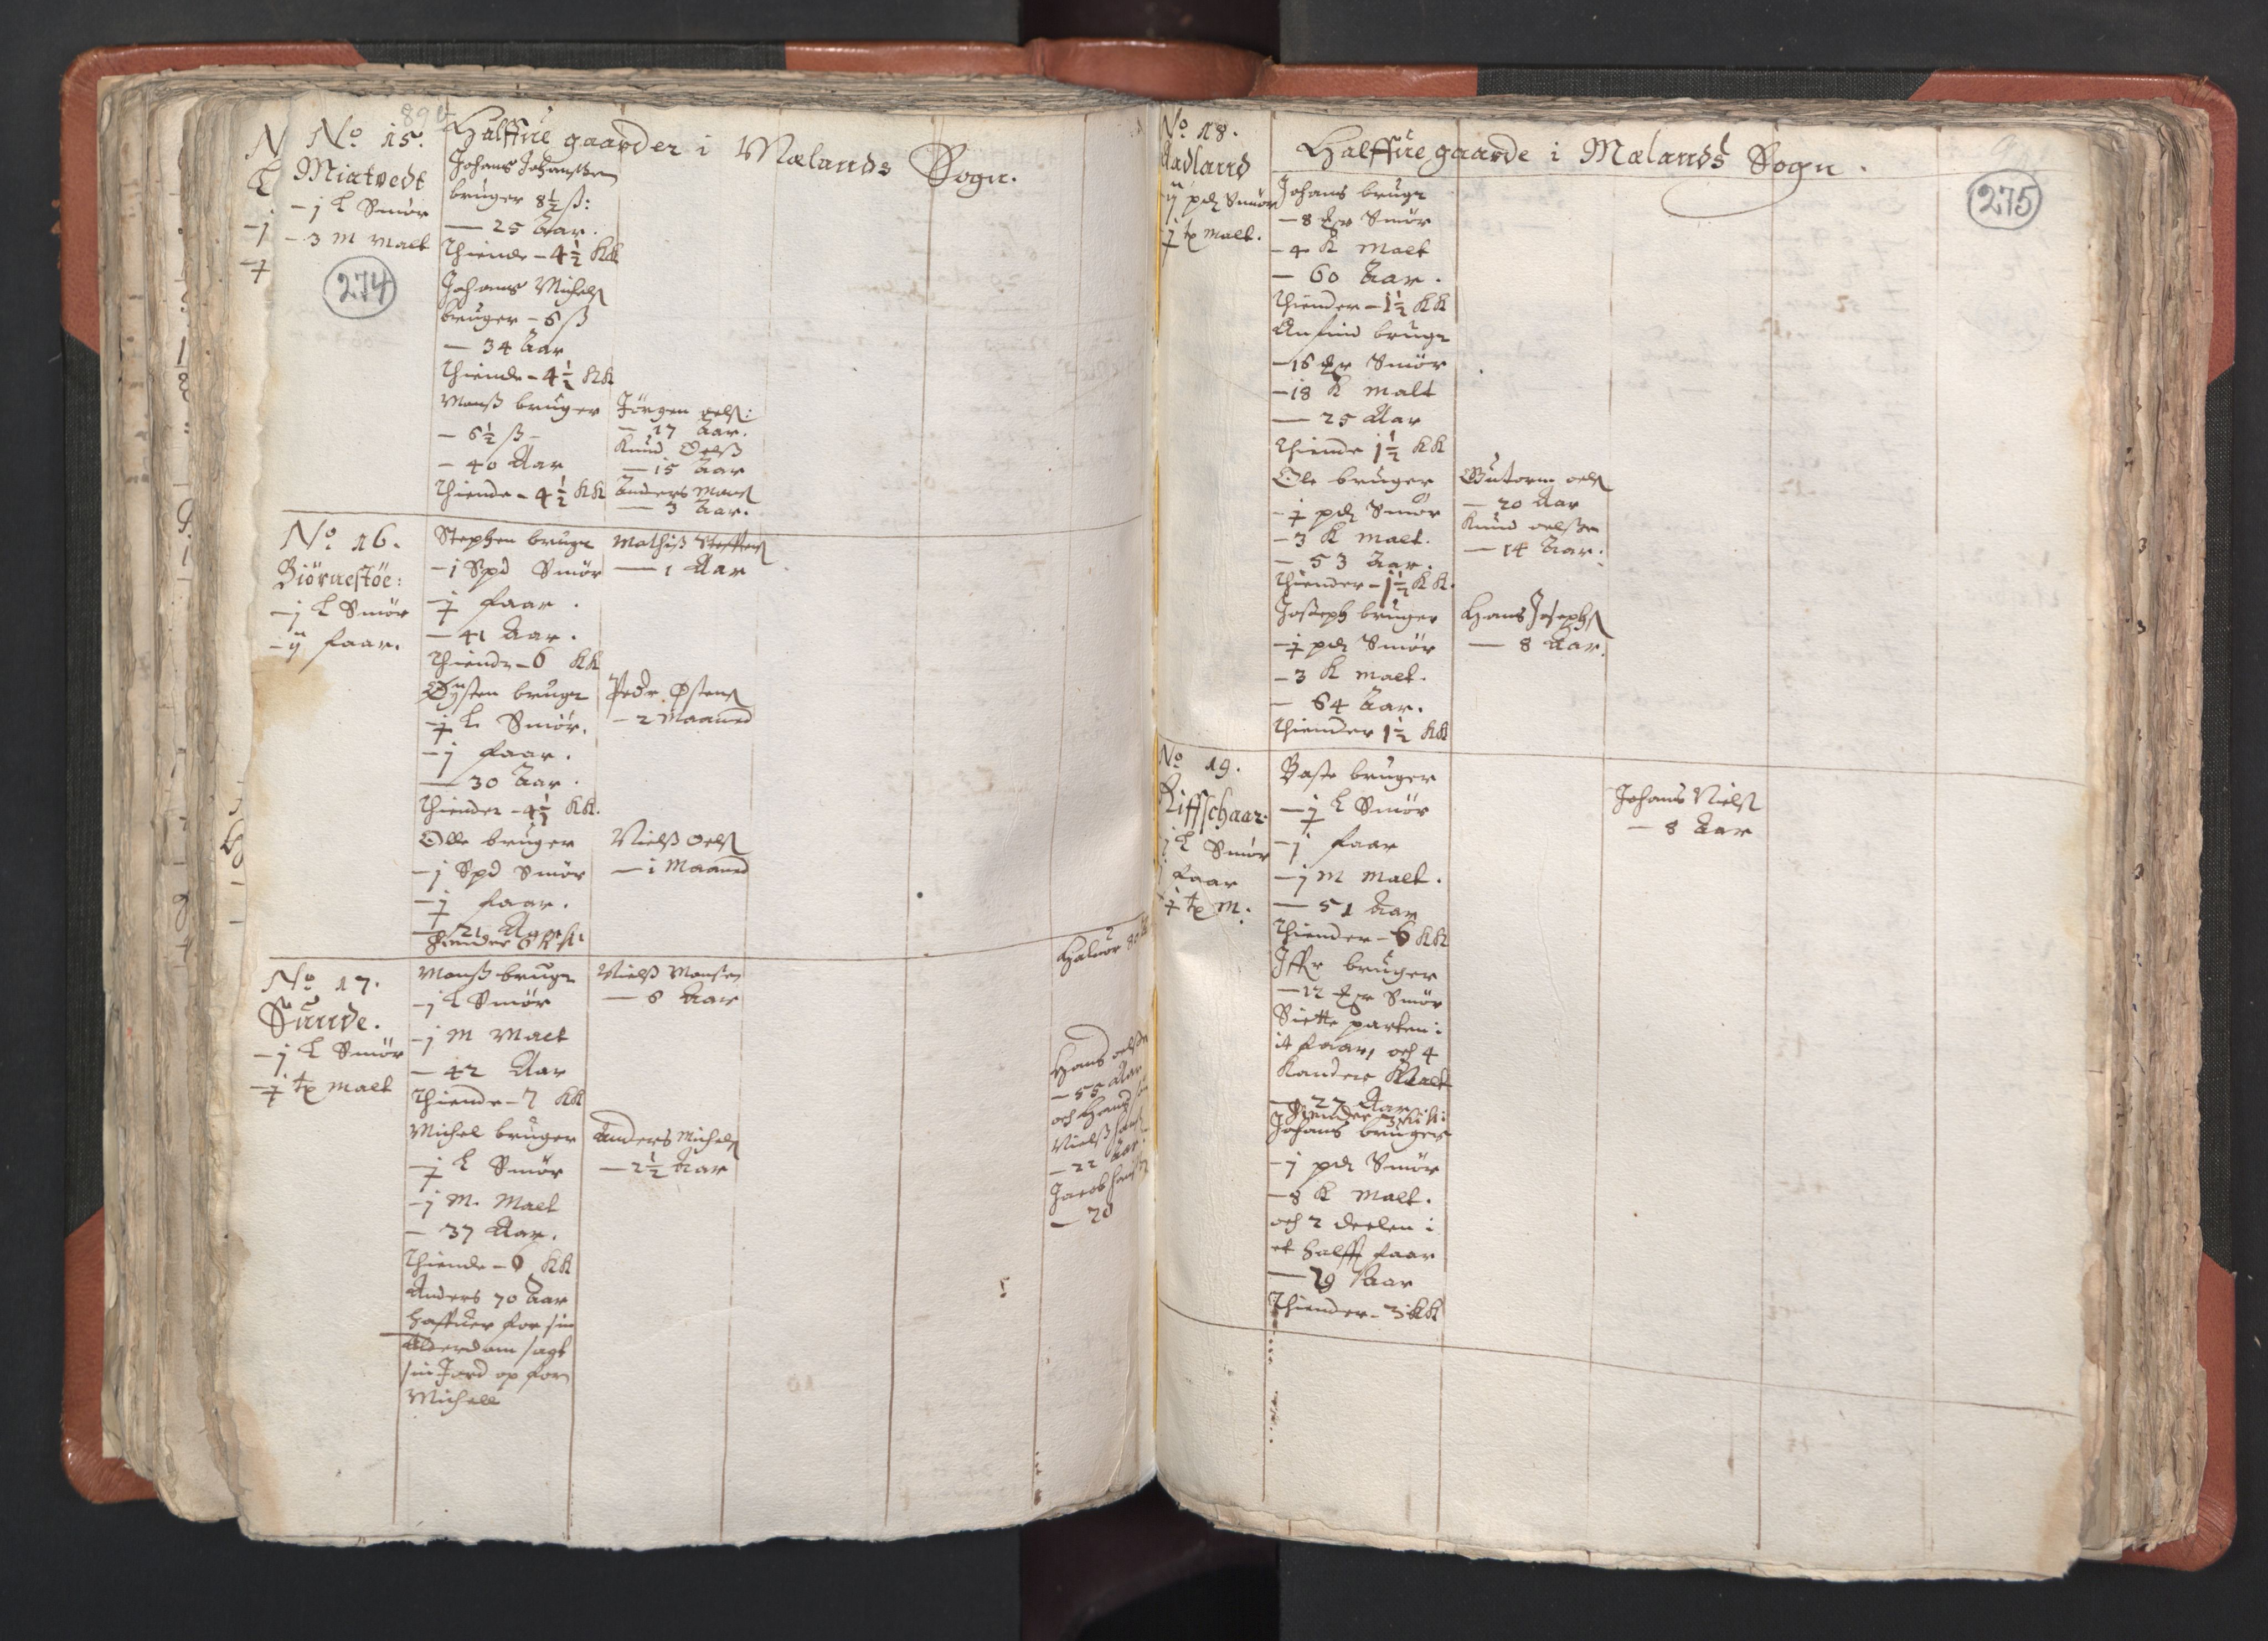 89
Halffue gaarder i Mælands Sogn.
No 15.
Miatvedt
– j L Smör
– 3 M Malt
274
Johans Johanßen
bruger 8½ ß:
— 25 Aar.
Thiende – 4½ KK
Johans Michels
bruger – 6 ß
— 34 Aar
Thiende – 4½ KK
Monß bruger
– 6½ ß –
– 40 Aar
Thiende – 4½ KK
Jörgen oels:
– 17 Aar.
Knud Oelß
— 15 Aar
Anders Mons
— 3 Aar.
No 16.
Biörnestöe:
– j L Smör
– ij faar.
Stephen bruger
– 1 Spd Smör
– j faar.
– 41 Aar.
Thiende – 6 KK
Öysten bruger
– j L Smör.
– j faar.
— 30 Aar.
Thiender – 4½ KK.
Olle bruger
– j Spd Smör
– j faar.
– 21 Aar
Thiender 6 KK:
Mathiß Steffens
— 1 Aar
Peder Østens
– 2 Maaned
Nielß Oels
– 1 Maaned
No 17.
Sunde.
– j L Smör
– j tp malt
Monß bruger
– j L Smör
– j M Malt
– 42 Aar
Thiende – 7 KK
Michel bruger
– j L Smör
– j M. Malt
– 37 Aar.
Thiende – 6 KK
Anders 70 Aar
haffuer for sin
Alderdom sagt
sin Jord op for
Michell
Nielß Monsen
— 6 Aar
Anders Michels
— 2½ Aar
2
Haluor
Hans oelßen
– 55 Aar
och Hans
Nielß
– 22 Aar
Jacob
– 20
Halffue gaarde i Mælands Sogn.
275
No 18.
Aadland
ij pd Smör
j tp Malt.
Johans bruger
– 8 Smör
– 4 K Malt
– 60 Aar.
Thiender – 1½ KK
Anfind bruger
– 16 Smör
– 18 K malt
— 25 Aar
Thiende 1½ KK
Ole bruger
– j pd Smör
– 3 K malt.
– 53 Aar.
Thiender – 1½ KK.
Joseph bruger
– j pd Smör
– 3 K malt.
– 64 Aar.
Thiender 1½ KK
Gutorm oels
– 20 Aar
Knud oelßen
– 14 Aar.
Hans Josephs
— 8 Aar.
No 19.
Riffschaar.
j L Smör
j faar
j tp M.
Baste bruger
– j L Smör
– j faar
– j M Malt.
— 51 Aar
Thiender – 6 KK
Iffr bruger
– 12 Smör
Siette parten i
it faar, och 4
Kander Malt
– 27 Aar
Thiender 3 KK:
Johans bruger
– j pd Smör
– 8 K Malt.
och 2 deelen i
et halff faar
— 29 Aar
Thiender – 3 KK
Johans Niels
– 8 Aar